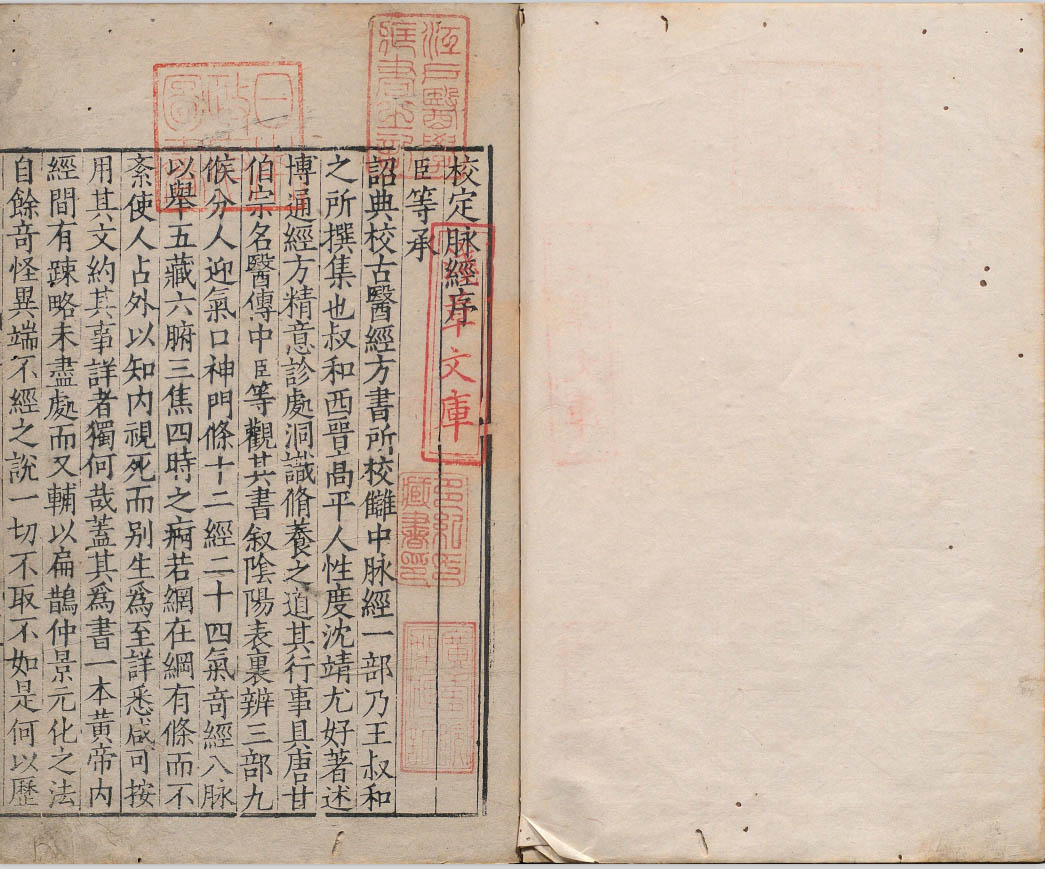 校定脉經序
臣等承
詔典校古醫經方書所校讎中脉經一部乃王叔和
之所撰集也叔和西晉高平人性度沈靖尤好著述
博通經方精意診處洞識脩養之道其行事具唐甘
伯宗名醫傳中臣等觀其書叙陰陽表裏辨三部九
候分人迎氣口神門條十二經二十四氣奇經八脉
以舉五藏六腑三焦四時之痾若網在綱有條而不
紊使人占外以知内視死而别生爲至詳悉咸可按
用其文約其事詳者獨何哉蓋其爲書一本黄帝内
經間有踈略未盡處而又輔以扁鵲仲景元化之法
自餘奇怪異端不經之說一切不取不如是何以歷
江戶醫學
藏書之記
文庫
多紀氏
藏書印